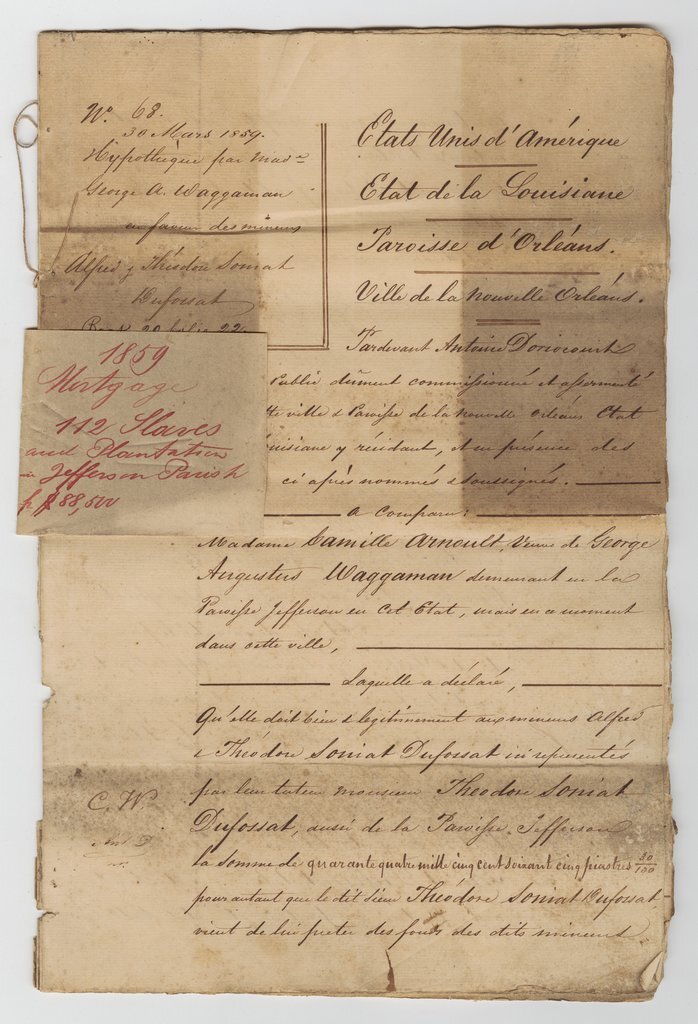 No. 68.
30 Mars 1859.
Hypothèque par Made
George A. Waggaman
en faveur des mineurs
Alfred & Théodore Soniat
Dufossat
Book 20 folio 22
1859
Mortgage
112 Slaves
and Plantation
in Jefferson Parish
for $88,500
Etats Unis d'Amérique
Etat de la Louisiane
Paroisse d'Orléans.
Ville de la Nouvelle Orléans.
Pardevant Antoine Doriocourt
Public dûment commissionné et assermenté
ville & Paroisse de la Nouvelle Orléans Etat
uisiane y résidant, et en présence des
ci après nommés & soussignés.
a Comparu:
Madame Camille Arnoult, Veuve de George
Augustus Waggaman demeurant en la
Paroisse Jefferson en cet Etat, mais en ce moment
dans cette ville,
Laquelle a déclaré,
Qu'elle doit bien & légitimement aux mineurs Alfred
& Théodore Soniat Dufossat ici représentés
par leur tuteur monsieur Théodore Soniat
Dufossat, aussi de la Paroisse Jefferson
la Somme de quarante quatre mille cinq cent soixant cinq piastres 80/100
pour autant que le dit sieur Théodore Soniat Dufossat
vient de lui preter des fonds des dits mineurs
C. W.